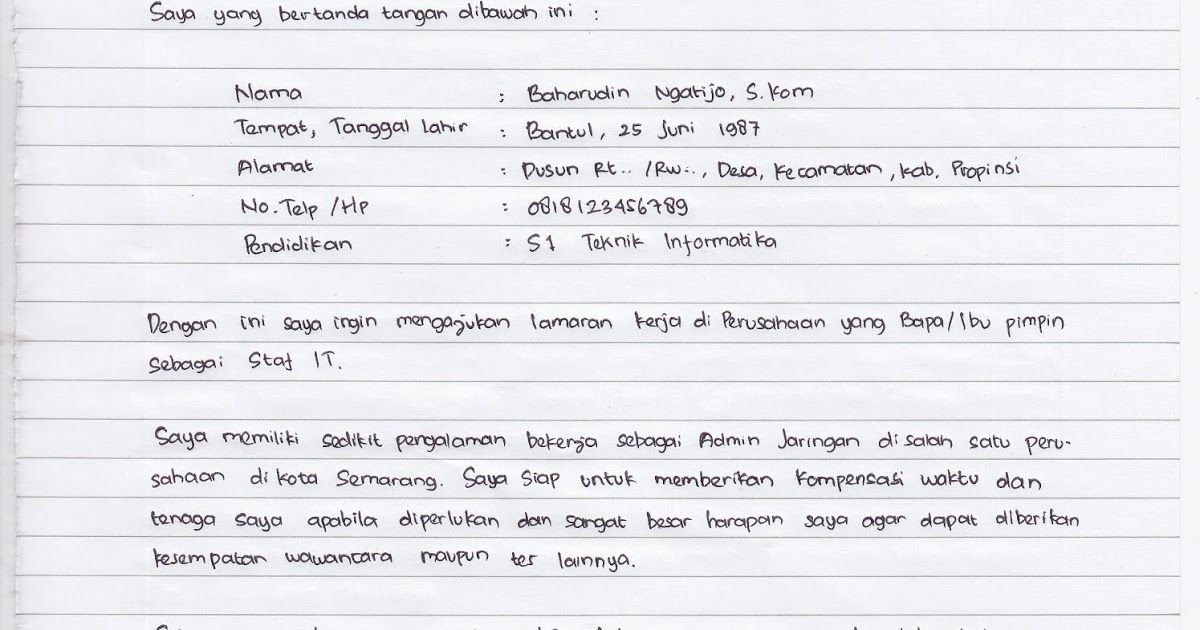 Saya yang bertanda tangan dibawah ini :
Nama : Baharudin Ngatijo, S.Kom
Tempat, Tanggal Lahir : Bantul, 25 Juni 1987
Alamat : Dusun Rt.. /Rw..., Desa, Kecamatan, Kab, Propinsi
No. Telp /Hp : 0818123456789
Pendidikan : S1 Teknik Informatika
Dengan ini saya ingin mengajukan lamaran kerja di Perusahaan yang Bapa/Ibu pimpin
sebagai Staf IT.
Saya memiliki sedikit pengalaman bekerja sebagai Admin Jaringan di salah satu peru-
sahaan di kota Semarang. Saya siap untuk memberikan kompensasi waktu dan
tenaga saya apabila diperlukan dan sangat besar harapan saya agar dapat diberikan
kesempatan wawancara maupun tes lainnya.